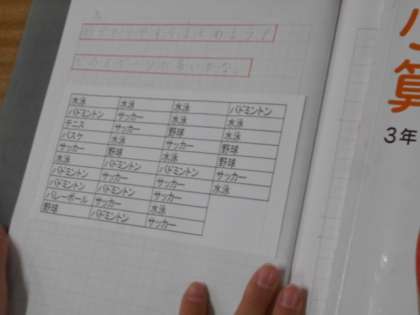 かりやすくまとめよう！
どのスポーツが多いかな。
水泳 水泳 水泳 バドミントン
バドミントン サッカー 水泳 水泳
テニス サッカー 野球 水泳
バスケ 水泳 サッカー 野球
サッカー 野球 水泳 野球
水泳 バドミントン バドミントン サッカー
バドミントン サッカー サッカー 水泳
バドミントン バドミントン サッカー
バレーボール サッカー 水泳
野球 バドミントン サッカー
算
3年